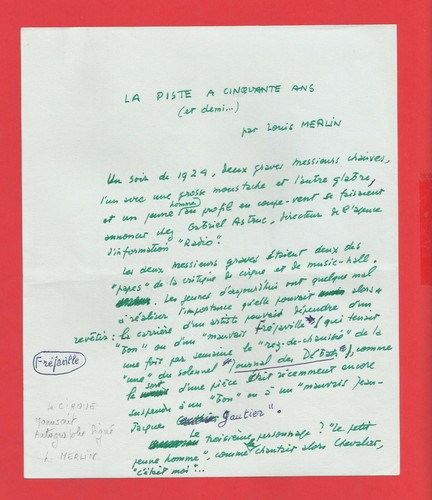 LA PISTE A CINQUANTE ANS
(et demi...)
par Louis MERLIN
Un soir de 1924, deux graves messieurs chauves,
l'un avec une grosse moustache et l'autre glabre,
et un jeune homme au profil en coupe-vent se faisaient
annoncer chez Gabriel Astruc, directeur de l'agence
d'information "Radio".
Les deux messieurs graves étaient deux des
"papes" de la critique de cirque et de music-hall.
Les jeunes d'aujourd'hui ont quelque mal
à réaliser l'importance qu'elle pouvait alors
revêtir: la carrière d'un artiste pouvait dépendre d'un
"bon" ou d'un "mauvais Fréjaville" (qui tenait
une fois par semaine le "rez-de-chaussée" de la
"une" du solennel "Journal des Débats"), comme
le sort d'une pièce était récemment encore
suspendu à un "bon" ou à un "mauvais Jean-
Jacques Gautier".
Le troisième personnage? "Le petit
jeune homme", comme chantait alors Chevalier,
"c'était moi"...
Fréjaville
CIRQUE
Manuscrit
Autographe Signé
L. MERLIN